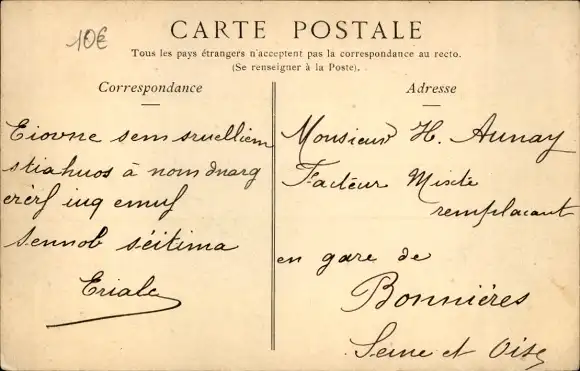 10€
CARTE POSTALE
Tous les pays étrangers n'acceptent pas la correspondance au recto.
(Se renseigner à la Poste).
Correspondance
Adresse
Eiovne sem sruelliem
stiahuos à nom dnarg
erèrf iuq emuf
Sennob séitima
Erialc
Monsieur H. Aunay
Facteur Mixte
remplacant
en gare de
Bonnières
Seine et Oise